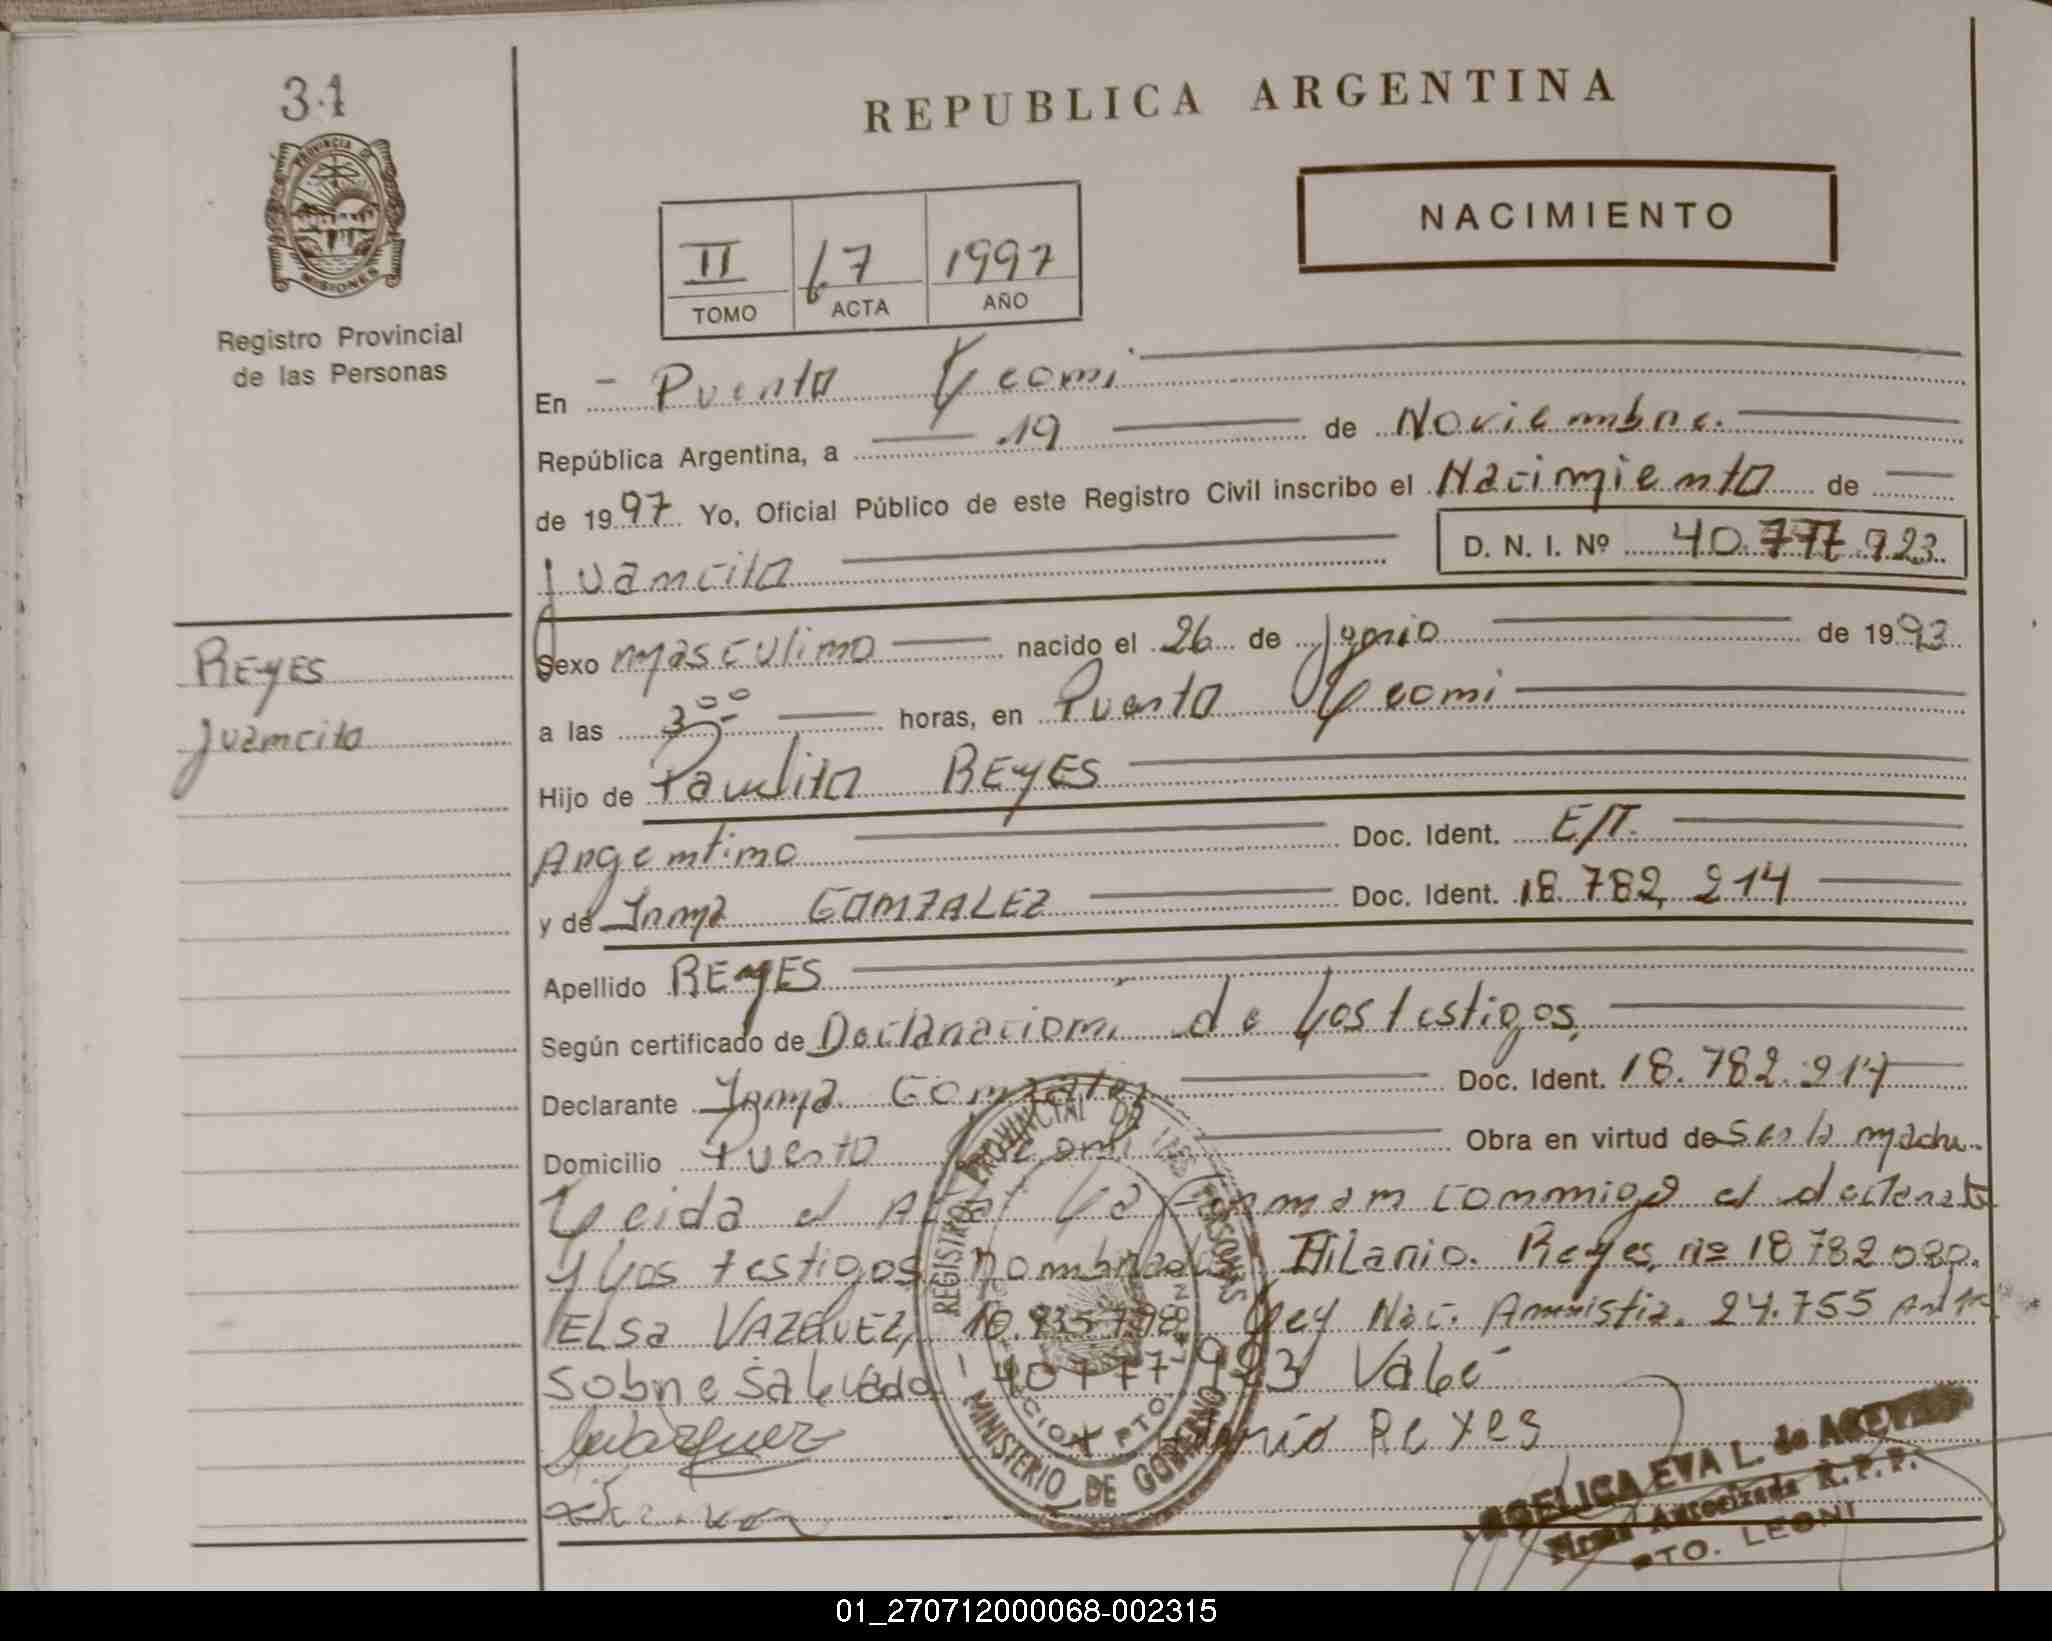 31
REPUBLICA ARGENTINA
PROVINCIA DE
MISIONES
NACIMIENTO
II 67 1997
TOMO ACTA AÑO
Registro Provincial
de las Personas
En - Puerto Leoni
República Argentina, a 19 de Noviembre.
de 1997 Yo, Oficial Público de este Registro Civil inscribo el Nacimiento de
Juancito D. N. I. Nº 40.777.923
REYES
Juancito
Sexo masculino nacido el 26 de Junio de 1993
a las 3 00 horas, en Puerto Leoni
Hijo de Paulito REYES
Argentino Doc. Ident. E/T.
y de Irma GONZALEZ Doc. Ident. 18.782.214
Apellido REYES
Según certificado de Declaracion de Los testigos
Declarante Irma Gonzalez Doc. Ident. 18.782.214
Domicilio Puerto Leoni Obra en virtud de Ser la madre
Leida el Acta La Firman conmigo el declarante
y Los testigos nombrados HiLario. Reyes nº 18 782 080.
ELSa VAZQUEZ, Ley Nac. Amnistia. 24.755
Sobre SaLvado 40777 923 VaLe
REGISTRO PROVINCIAL DE LAS PERSONAS
MINISTERIO DE GOBIERNO
Reyes
ANGELICA EVA L. de
Firma Autorizada R.P.P.
PTO. LEONI
01_270712000068-002315